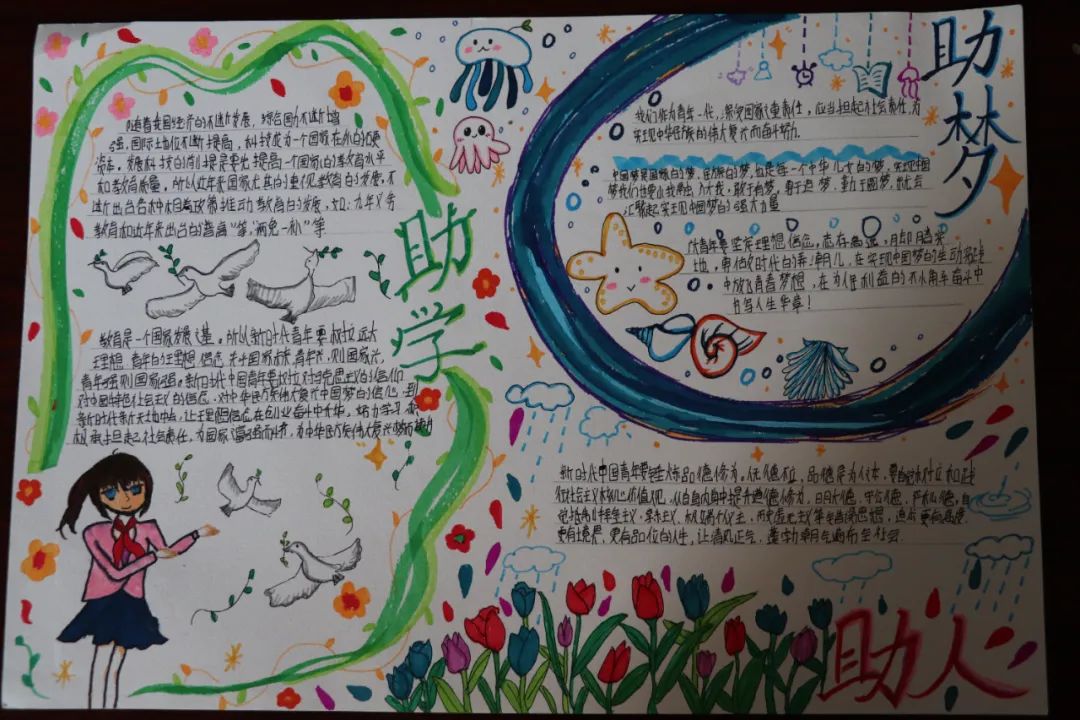 随着我国经济的不断发展，综合国力不断增
强，国际地位不断提高，科技成为一个国家在外的硬
资本。发展科技的前提是要先提高一个国家的教育水平
和教育质量。所以近年来国家尤其的重视教育的发展。不
断出台各种相关政策推动教育的发展，如：九年义务
教育和近年来出台的"两免一补"等
助学
教育是一个国家发展之基。所以新时代青年要树立远大
理想。青年的理想信念关乎国家未来，青年兴，则国家兴，
青年强则国家强。新时代中国青年要树立对马克思主义的信仰
对中国特色社会主义的信念、对中华民族伟大复兴中国梦的信心，到
新时代新天地中去，让理想信念在创业奋斗中升华，努力学习
积极承担起社会责任，为国家富强而，为中华民族伟大复兴
助梦
我们作为青年一代，承受国家之重责任，应当担起社会责任，为
实现中华民族的伟大复兴而奋斗努力。
中国梦是国家的梦，民族的梦，也是每一个中华儿女的梦，实现中国
梦我们，敢于有梦，勇于追梦，勤于圆梦，就会
汇聚起实现中国梦的强大力量
青年要坚定理想信念，志存高远，脚踏实
地，勇做时代的弄潮儿，在实现中国梦的生动实践
中放飞青春梦想，在为人民利益的不懈奋斗中
书写人生华章！
新时代中国青年要锤炼品德修为，人无德不立，品德是为人之本，要自觉树立和践
行社会主义核心价值观，从自身内省中提升道德修为，明大德、守公德、严私德，自
觉抵制拜金主义、享乐主义、极端个人主义、历史虚无主义等错误思想，追求更有高度
更有境界、更有品位的人生，让清风正气、蓬勃朝气遍布全社会
助人